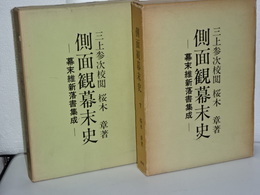 三上参次校閲 桜木 章著
側面観幕末史
―幕末維新落書集成―
三上参次校閲 桜木 章著
側面観幕末史
―幕末維新落書集成―